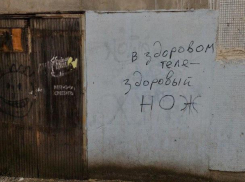 в здоровом
теле—
здоровый
нож